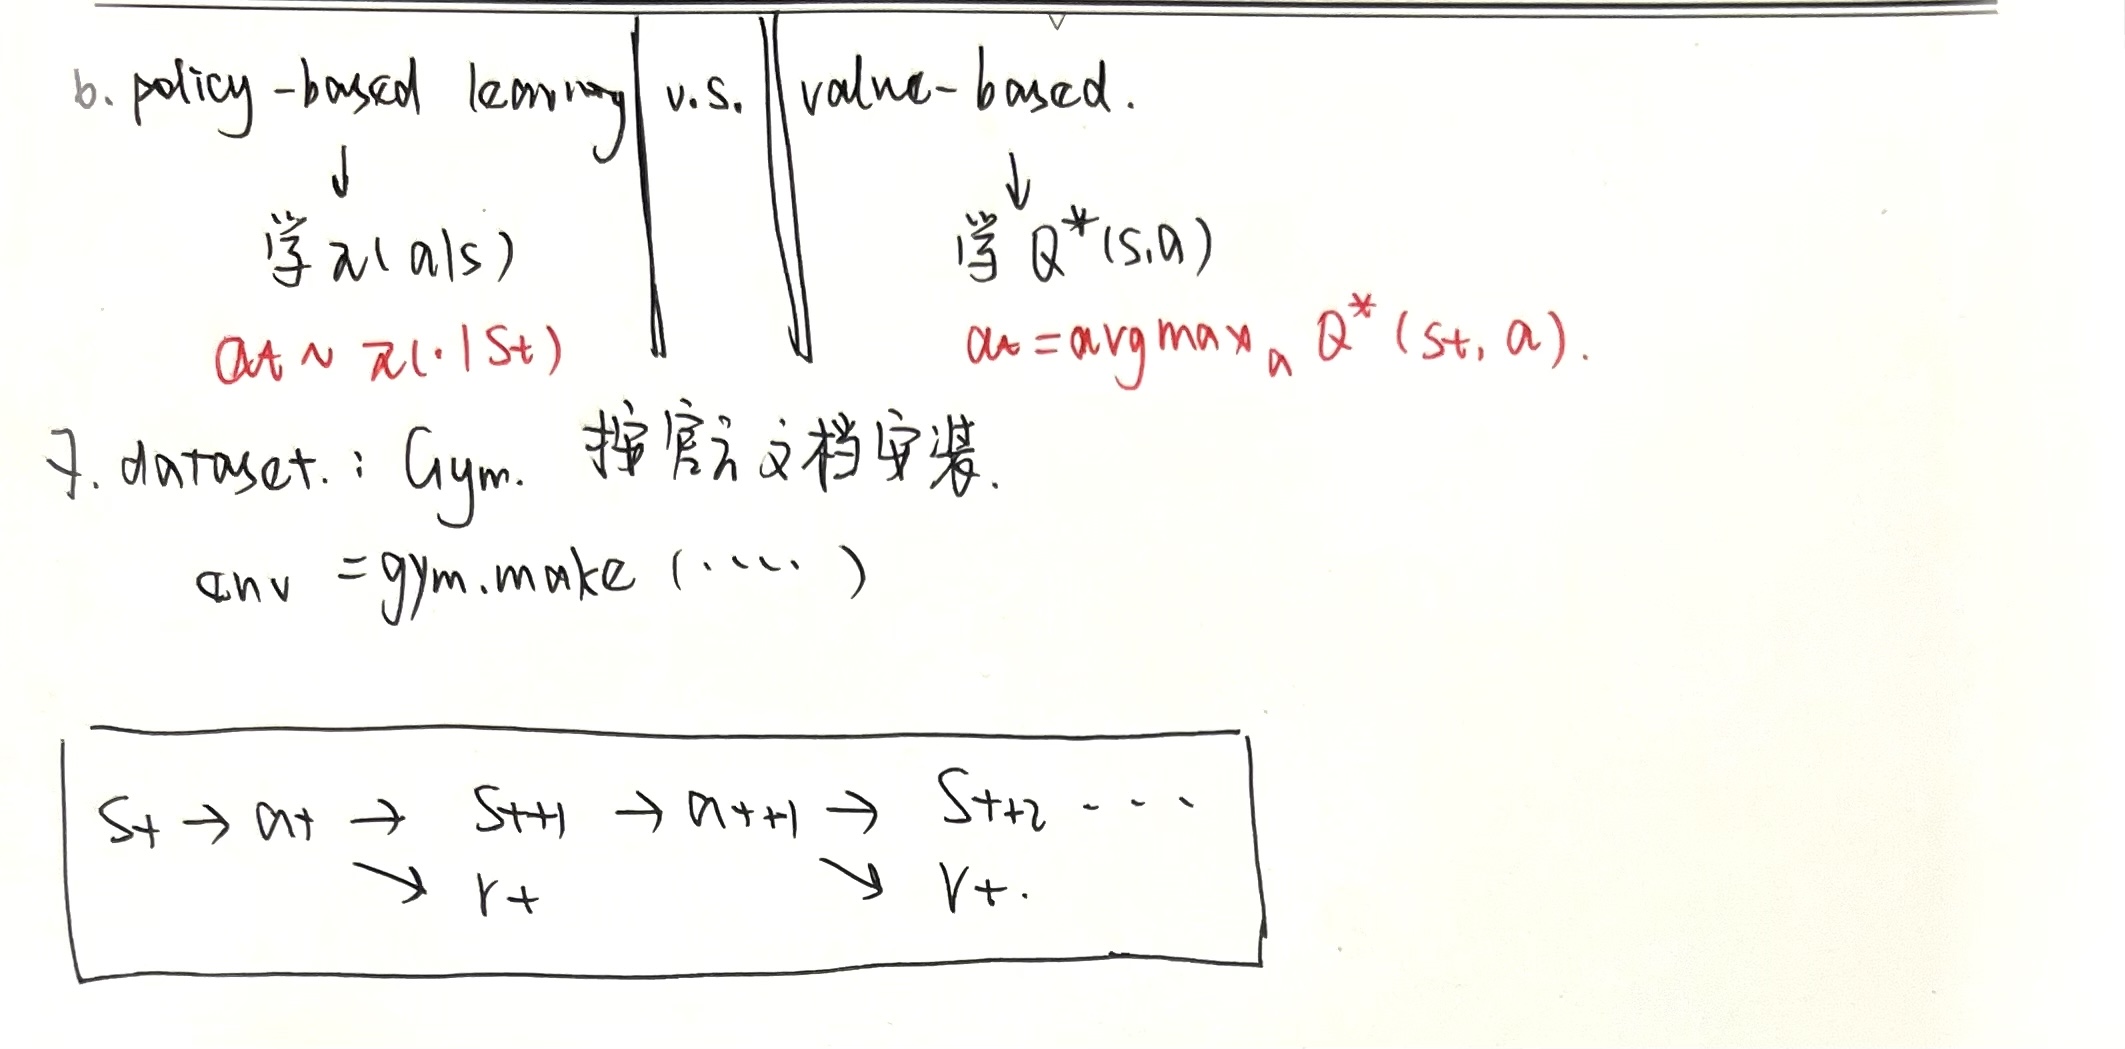 6. policy-based learning v.s. value-based.
↓ ↓
学 π(a|s) 学 Q*(s,a)
at ~ π(·|st) at = argmax a Q*(st, a).
7. dataset. : Gym. 按官方文档安装.
env = gym.make (.....)
St → at → St+1 → at+1 → St+2 ---
↘ rt ↘ rt.